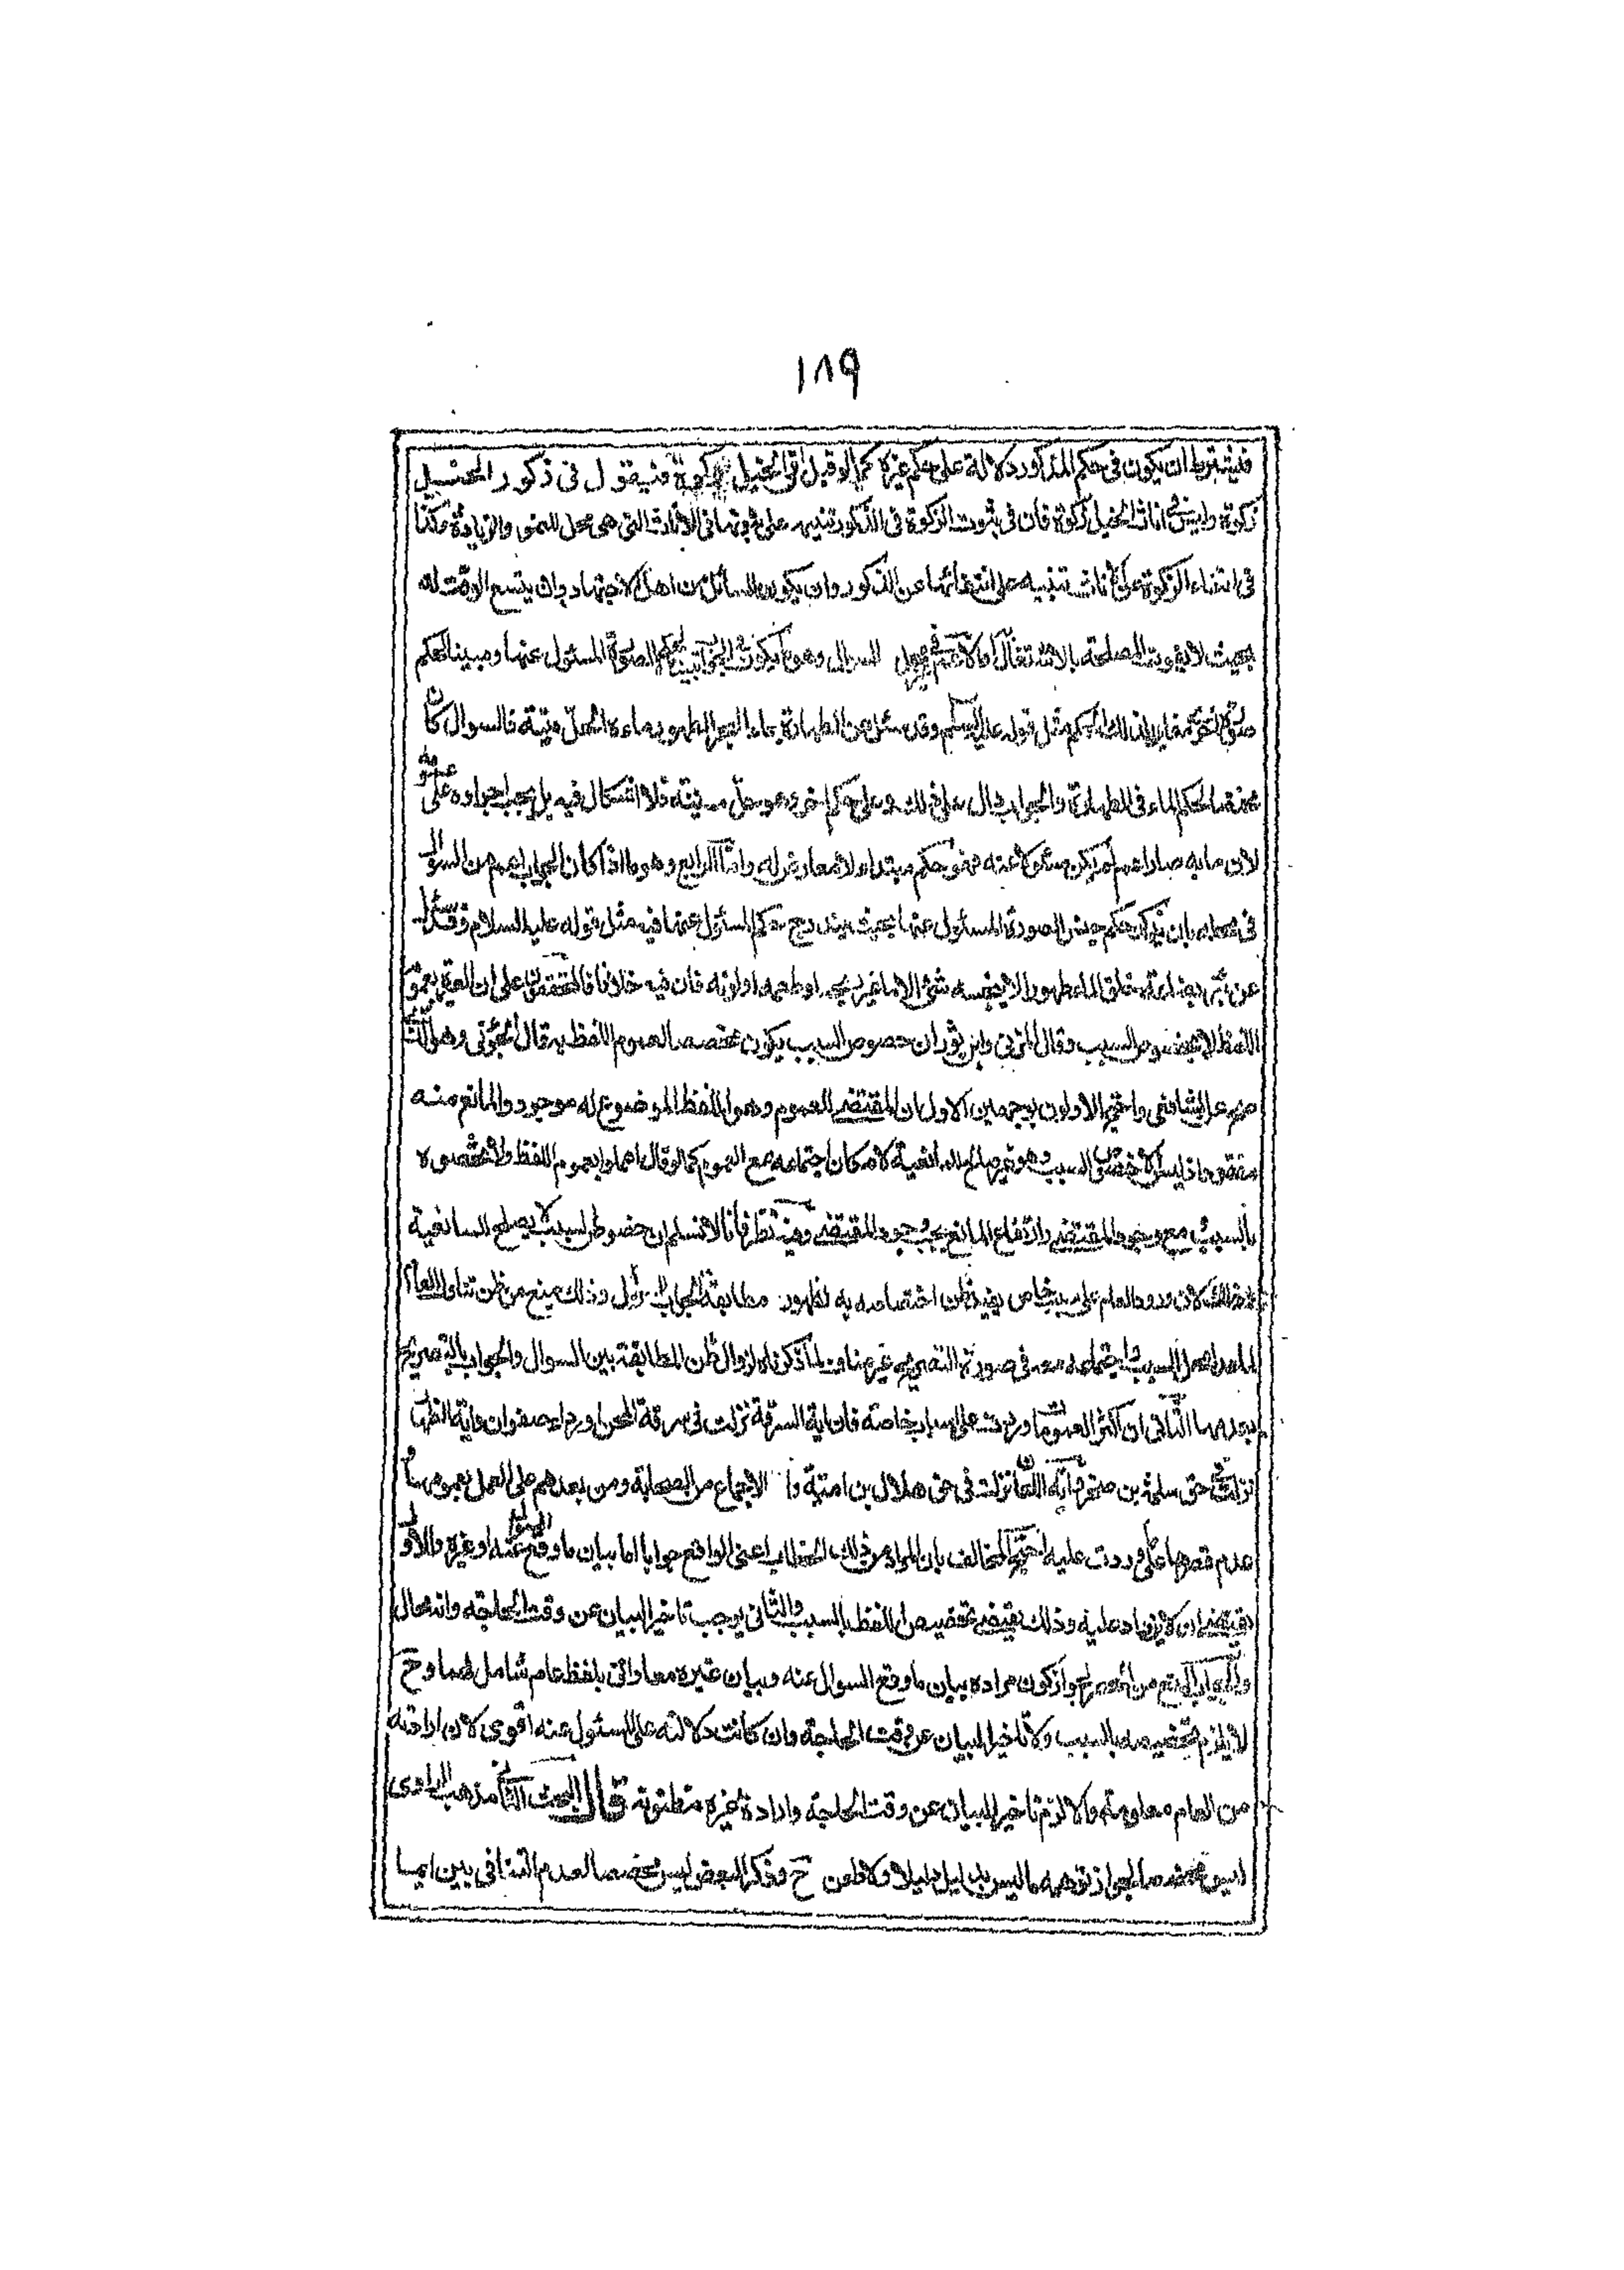 ١٨٩
فليشترط ان يكون في حكم المذكور دلالة على حكم غيره كما لو قيل افي الخيل زكوة فيقول في ذكور الخيل
زكوة وليس في اناث الخيل زكوة فان في ثبوت الزكوة في الذكور تنبيه على ثبوتها في الاناث التي هي محل للنمو والزيادة وكذا
في انتفاء الزكوة عن الاناث تنبيه على انتفائها عن الذكور وان يكون السائل من اهل الاجتهاد وان يتسع الوقت له
بحيث لا يفوت المصلحة بالاشتغال اما الاعم في غير محل السوال وهو ان يكون الجواب مبينا لحكم الصورة المسئول عنها ومبينا لحكم
صورة اخرى مغاير لذلك الحكم مثل قوله عليه السلام وقد سئل عن الطهارة بماء البحر الطهور ماءه الحل ميتته فالسوال كان
مختصا لحكم الماء في الطهارة والجواب دال على ذلك وعلى حكم اخر وهو حل ميتته فلا اشكال فيه بل يجب اجراوه على عمومه
لان ما به صار اعم لم يكن مسئولا عنه فهو حكم مبتداء لا معارض له واما الرابع وهو ما اذا كان الجواب اعم من السوال
في محله بان يكون حكم جنس الصورة المسئول عنها بحيث يندرج حكم المسئول عنها فيه مثل قوله عليه السلام وقد سئل
عن بئر بضاعة خلق الماء طهورا لا ينجسه شئ الا ما غير ريحه او طعمه او لونه فان فيه خلافا فالمحققون على ان العبرة بعموم
اللفظ لا بخصوص السبب وقال المزني وابو ثور ان خصوص السبب يكون مخصصا لعموم اللفظ به قال الجويني وهو الذي
صح عن الشافعي واحتج الاولون بوجهين الاول ان المقتضى للعموم وهو اللفظ الموضوع له موجود والمانع منه
مفقود اذ ليس الا خصوص السبب وهو غير صالح للمانعية لامكان اجتماعه مع العموم كما لو قال اعملوا بعموم اللفظ ولا تخصصوه
بالسبب مع وجود المقتضى وارتفاع المانع يجب وجود المقتضى وفيه نظر فانا لا نسلم ان خصوص السبب لا يصلح للمانعية
وذلك لان ورود العام على سبب خاص يفيد ظن اختصاصه به لظهور مطابقة الجواب للسؤال وذلك يمنع من ظن تناول العام
لما عدا محل السبب واجتماعه معه في صورة التصريح غير مناف لما ذكرناه لزوال ظن المطابقة بين السوال والجواب بالتصريح
بعدمها الثاني ان اكثر العمومات وردت على اسباب خاصة فان اية السرقة نزلت في سرقة المجن او رداء صفوان واية الظهار
نزلت في حق سلمة بن صخر واية اللعان نزلت في حق هلال بن امية و الاجماع من الصحابة ومن بعدهم على العمل بعمومها و
عدم قصرها على ما وردت عليه احتج المخالف بان المراد من ذلك الخطاب اعنى الواقع جوابا اما بيان ما وقع السوال عنه او غيره والاول
يقتضى ان لا يزاد عليه وذلك يقتضى تخصيص اللفظ بالسبب والثاني يوجب تاخير البيان عن وقت الحاجة وانه محال
والجواب المنع من الحصر لجواز كون مراده بيان ما وقع السوال عنه وبيان غيره معا واتى بلفظ عام شامل لهما وح
لا يلزم تخصيصه بالسبب ولا تاخير البيان عن وقت الحاجة وان كانت دلالته على المسئول عنه اقوى لان ارادته
من العام معلومة والا لزم تاخير البيان عن وقت الحاجة وارادة غيره مظنونة قال البحث الثاني مذهب الراوى
ليس مخصصا لجواز توهمه ما ليس بدليل دليلا ولا طعن ح وذكر البعض ليس مخصصا لعدم التنافى بين ايما